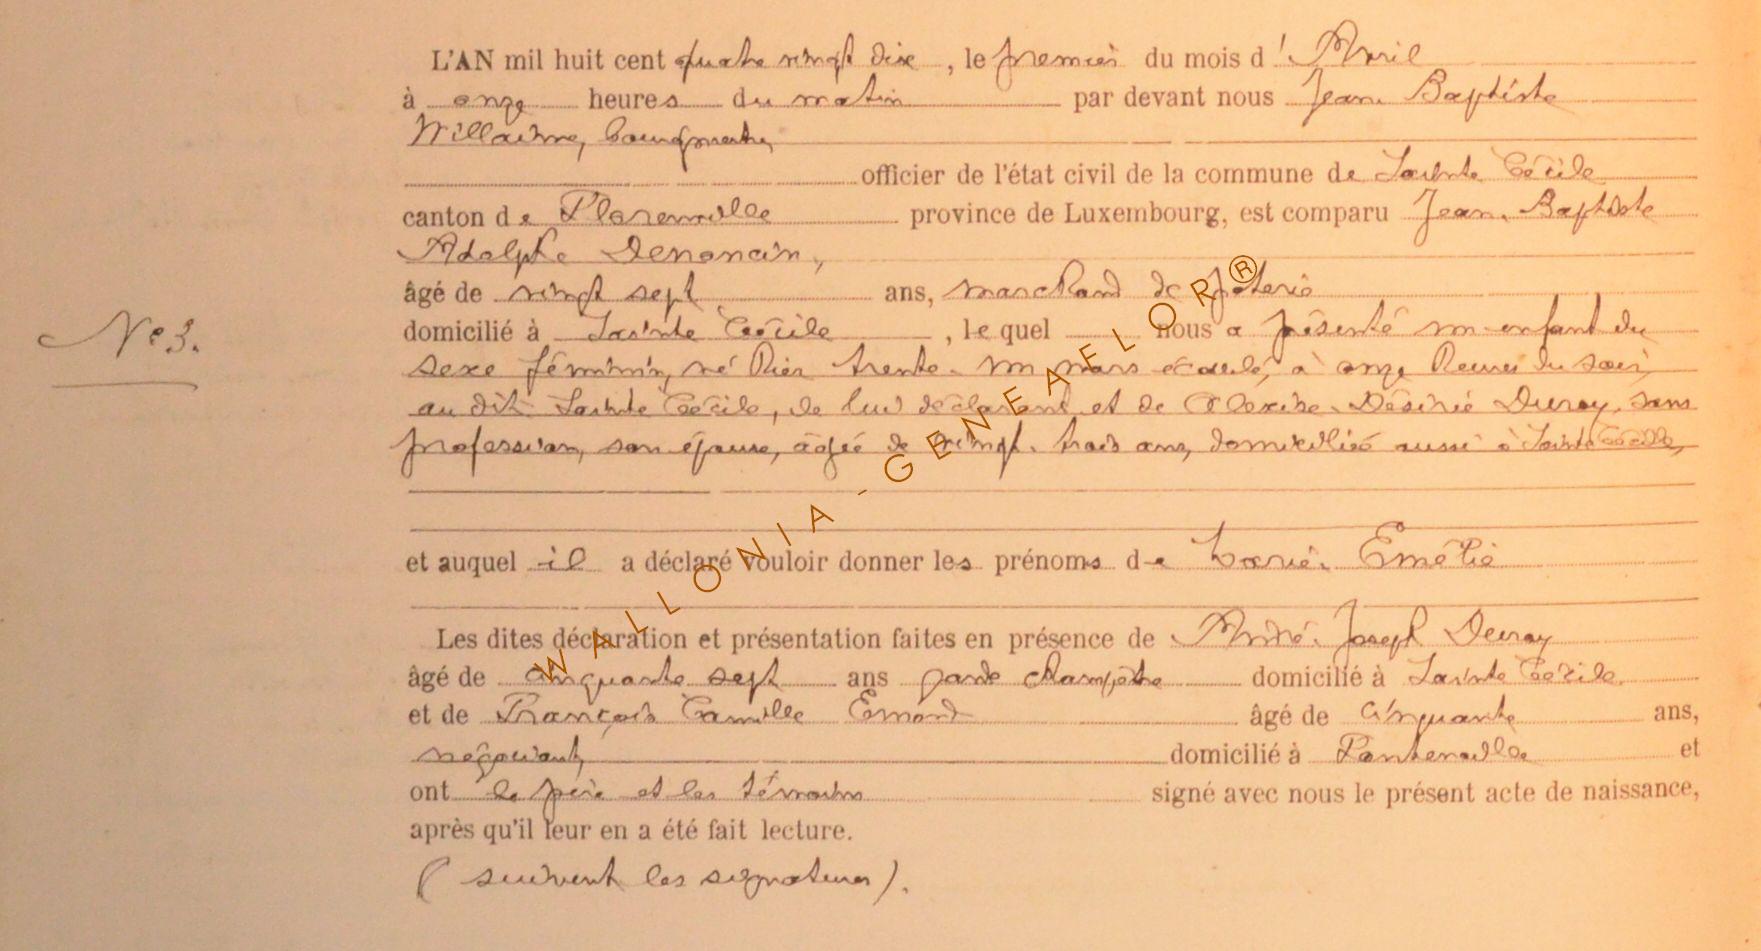 L'AN mil huit cent quatre vingt dix, le premier du mois d'Avril
à onze heures du matin par devant nous Jean Baptiste
Willaime, bourgmestre,
officier de l'état civil de la commune de Sainte Cécile
canton de Florenville province de Luxembourg, est comparu Jean Baptiste
Adolphe Denoncin,
âgé de vingt sept ans, marchand de poterie
N° 3.
domicilié à Sainte Cécile, le quel nous a présenté un enfant du
sexe féminin, né hier trente un mars écoulé, à onze heures du soir,
au dit Sainte Cécile, de lui déclarant et de Désirée Duroy, sans
profession, son épouse, âgée de vingt trois ans, domiciliée aussi à Sainte Cécile,
et auquel il a déclaré vouloir donner les prénoms de Emélie
Les dites déclaration et présentation faites en présence de André Joseph Duroy
âgé de cinquante sept ans garde champêtre domicilié à Sainte Cécile
et de François Camille Emond âgé de cinquante ans,
négociant, domicilié à Fontenoille et
ont le père et les témoins signé avec nous le présent acte de naissance,
après qu'il leur en a été fait lecture.
(suivent les signatures).
WALLONIA - GENEALOR®